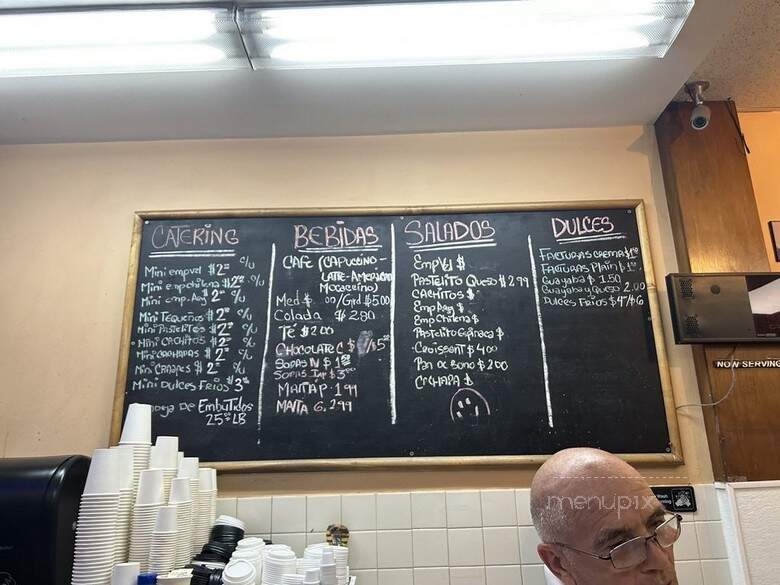 CATERING
Mini empVel $2.00 c/u
Mini empchilena $2.00 c/u
Mini emp. Arg $2.00 c/u
Mini TEQUEÑOS $2.00 c/u
Mini PASTELITOS $2.00 c/u
Mini CACHITOS $2.00 c/u
Mini CACHAPAS $2.00 c/u
Mini $2.00 c/u
Mini Dulces Frios $3.00
DE EmbuTidos
25.00 LB
BEBIDAS
CAFE (CAPUCCINO -
LATTE - AMERICANO
MOCACCINO)
Med $ 00/Grd $5.00
Colada $2.80
Té $2.00
CHOCOLATE C $ /$5
SODAS N $1
SODAS Imp $3.00
MALTA P. 1.99
MALTA G. 2.99
SALADOS
EmpVel $
PASTELITO QUESO $2.99
CACHITOS $
Emp Arg $
Emp Chilena $
PASTELITO Espinaca $
Croissant $4.00
Pan de Bono $2.00
CACHAPA $
DULCES
FACTURAS CREMA $1.50
FACTURAS Plain $1
Guayaba $1.50
Guayaba y Queso 2.00
Dulces Frios $4/$6
NOW SERVING
menupix